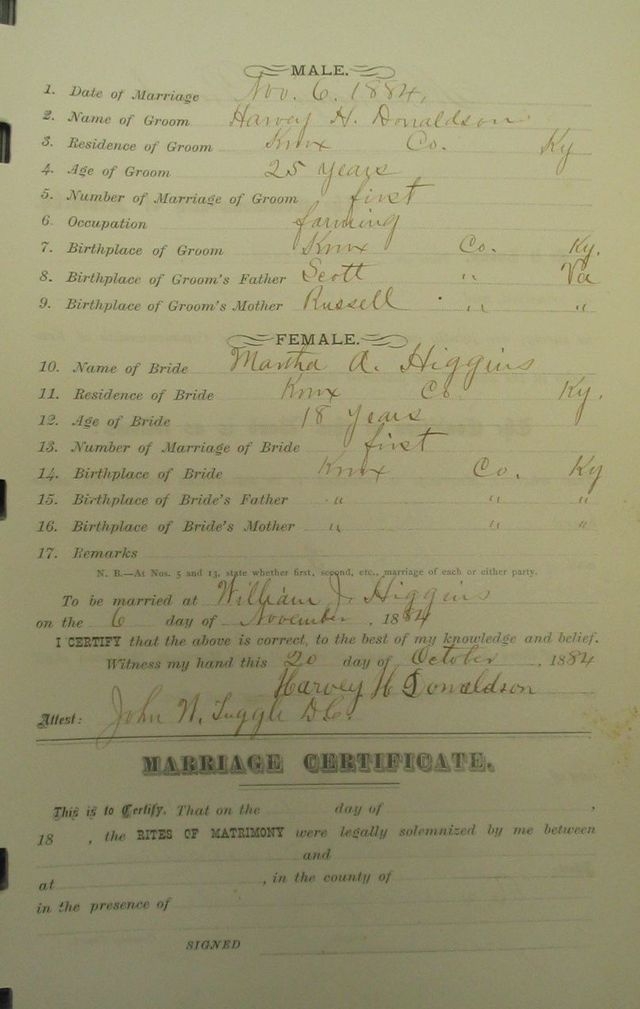 MALE.
1. Date of Marriage Nov. 6. 1884.
2. Name of Groom Harvey H. Donaldson
3. Residence of Groom Knox Co. Ky
4. Age of Groom 25 years
5. Number of Marriage of Groom first
6. Occupation farming
7. Birthplace of Groom Knox Co. Ky.
8. Birthplace of Groom's Father Scott " Va
9. Birthplace of Groom's Mother Russell " "
FEMALE.
10. Name of Bride Martha A. Higgins
11. Residence of Bride Knox Co Ky.
12. Age of Bride 18 years
13. Number of Marriage of Bride first
14. Birthplace of Bride Knox Co. Ky
15. Birthplace of Bride's Father " " "
16. Birthplace of Bride's Mother " " "
17. Remarks
N. B.—At Nos. 5 and 13, state whether first, second, etc., marriage of each or either party.
To be married at William J. Higgins
on the 6 day of November, 1884
I CERTIFY that the above is correct, to the best of my knowledge and belief.
Witness my hand this 20 day of October, 1884
Harvey H Donaldson
Attest: John W. Tuggle D.C.
MARRIAGE CERTIFICATE.
This is to Certify, That on the day of ,
18 , the RITES OF MATRIMONY were legally solemnized by me between
and
at , in the county of
in the presence of
SIGNED